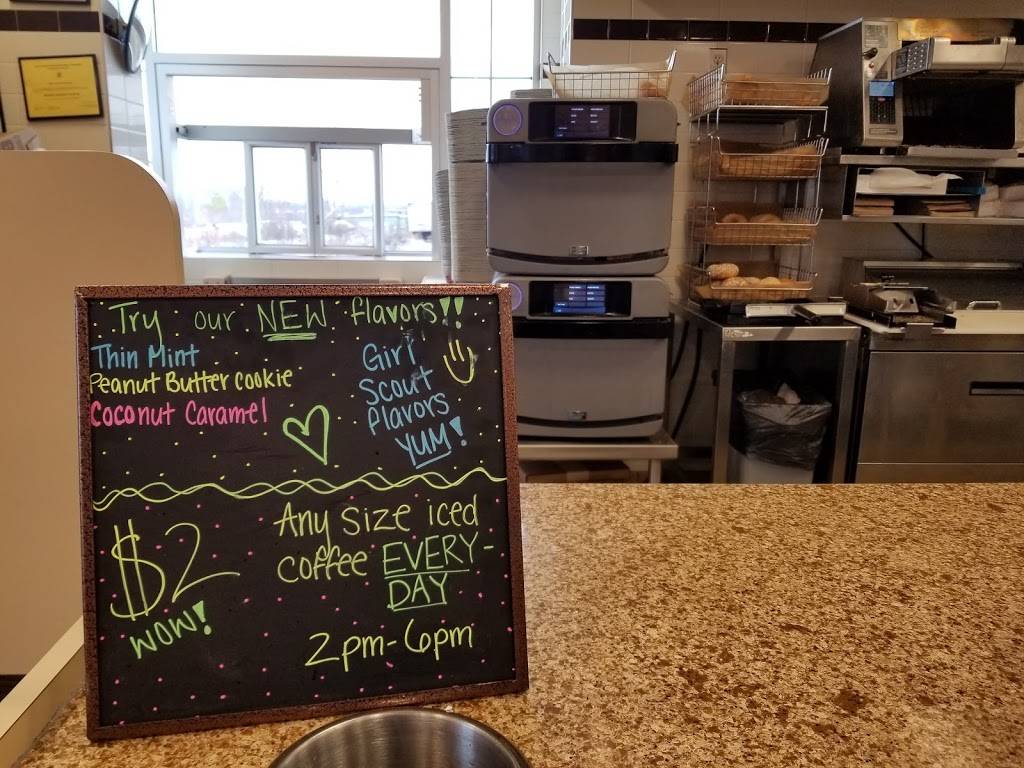 Try our NEW flavors!!
Thin Mint
Peanut Butter cookie
Coconut Caramel
Girl
Scout
flavors
YUM!
$2
WOW!
Any size iced
coffee EVERY-
DAY
2pm-6pm